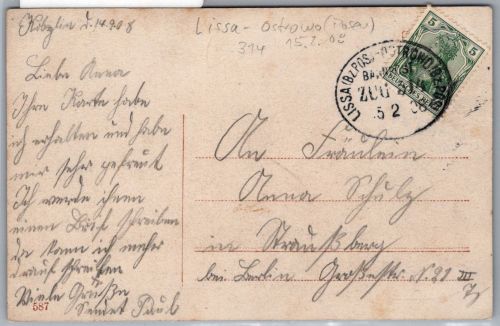 Kobylin d. 14.2.08
Lissa - Ostrowo (
314 15.2.08
Liebe Anna
Ihre Karte habe
ich erhalten und habe
mir sehr gefreut
Ich werde ihnen
einen Brief schreiben
da kann ich mehr
drauf schreiben
Viele Grüße
Sendet Paul
587
5
LISSA (BZ. POS.) - OSTROWO (BZ. POS.)
BAHNPOST
ZUG
15 2 08
An Fräulein
Anna Schulz
in Straußberg
bei Berlin Großestr. N. 20 III